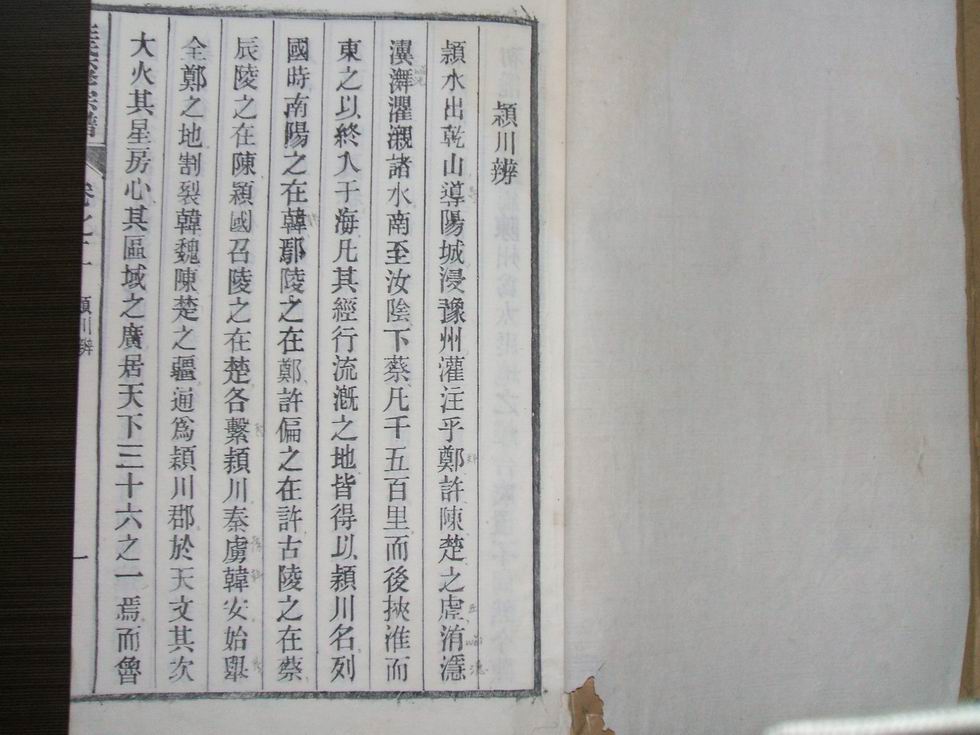 潁川辨
潁水出乾山導陽城浸豫州灌注乎鄭許陳楚之虛洧濦
瀷灈瀙諸水南至汝陰下蔡凡千五百里而後挾淮而
東之以終入于海凡其經行流漑之地皆得以潁川名列
國時南陽之在韓鄢陵之在鄭許偏之在許古陵之在蔡
辰陵之在陳潁國召陵之在楚各繫潁川秦虜韓安始舉
全鄭之地割裂韓魏陳楚之疆通爲潁川郡於天文其次
大火其星房心其區域之廣居天下三十六之一焉而魯
卷之十一 潁川辨
一